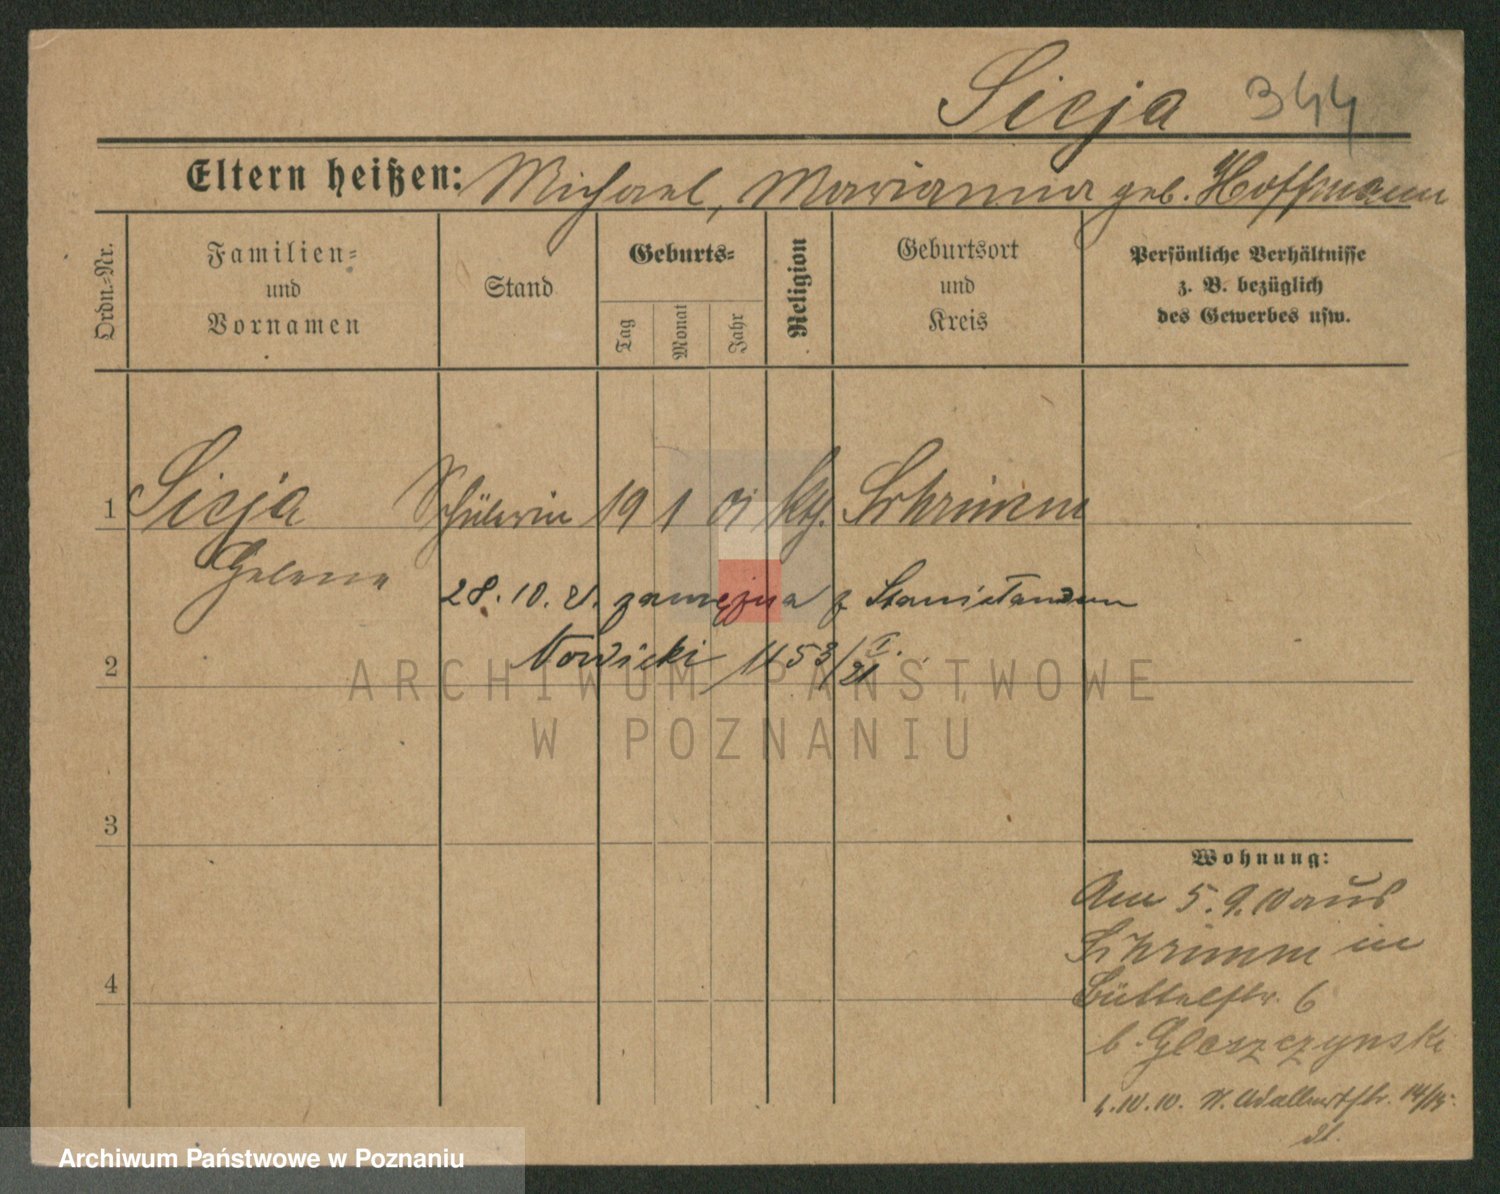 Sieja 344
Eltern heißen: Michael, Marianna geb. Hoffmann
Ordn.-Nr.
Familien- und Vornamen
Stand
Geburts-
Tag
Monat
Jahr
Religion
Geburtsort und Kreis
Persönliche Verhältnisse
z. B. bezüglich
des Gewerbes usw.
1 Sieja Schülerin 19 1 01 kth. Schrimm
Helena
28.10.21. zamężna z
2 Nowicki 1153/21
ARCHIWUM PAŃSTWOWE
W POZNANIU
3
Wohnung:
Am 5.9.10 aus
Schrimm in
4 Büttelstr. 6
b. Gleszczynski
4.10.10. N. Adalbertstr. 14/15.
Archiwum Państwowe w Poznaniu